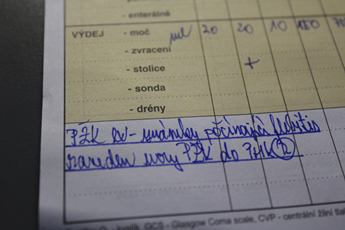 - enterálně
VÝDEJ - moč ml 20 20 10 180
- zvracení
- stolice +
- sonda
- drény
PŽK ex - známky počínající flebitis
zaveden nový PŽK do PHK
GCS - Glasgow Coma scale, CVP - centrální žilní tlak